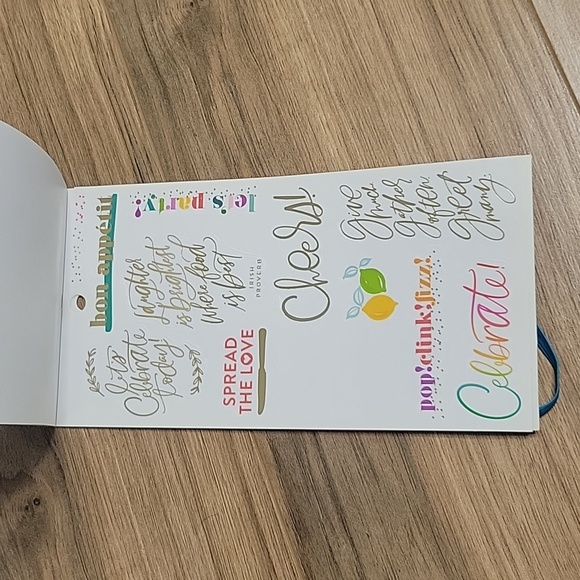 bon appétit
let's
Celebrate
today!
let's party!
Laughter
is brightest
where food
is best
IRISH
PROVERB
SPREAD
THE LOVE
Cheers!
Give
much
Gather
often
Greet
many
pop!clink!fizz!
Celebrate!